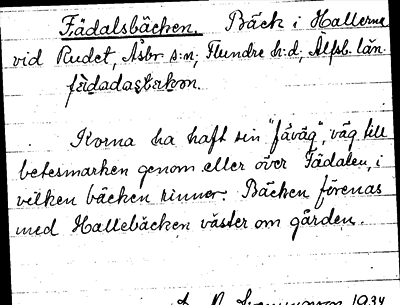 Fädalsbäcken. Bäck i Hallerna
vid Rudet, Åsbr s:n, Flundre h:d, Älfsb. län.
fädadastakan.
Korna ha haft sin "fäväg", väg till
betesmarken genom eller över Fädalen, i
vilken bäcken rinner. Bäcken förenas
med Hallebäcken väster om gården.
1934